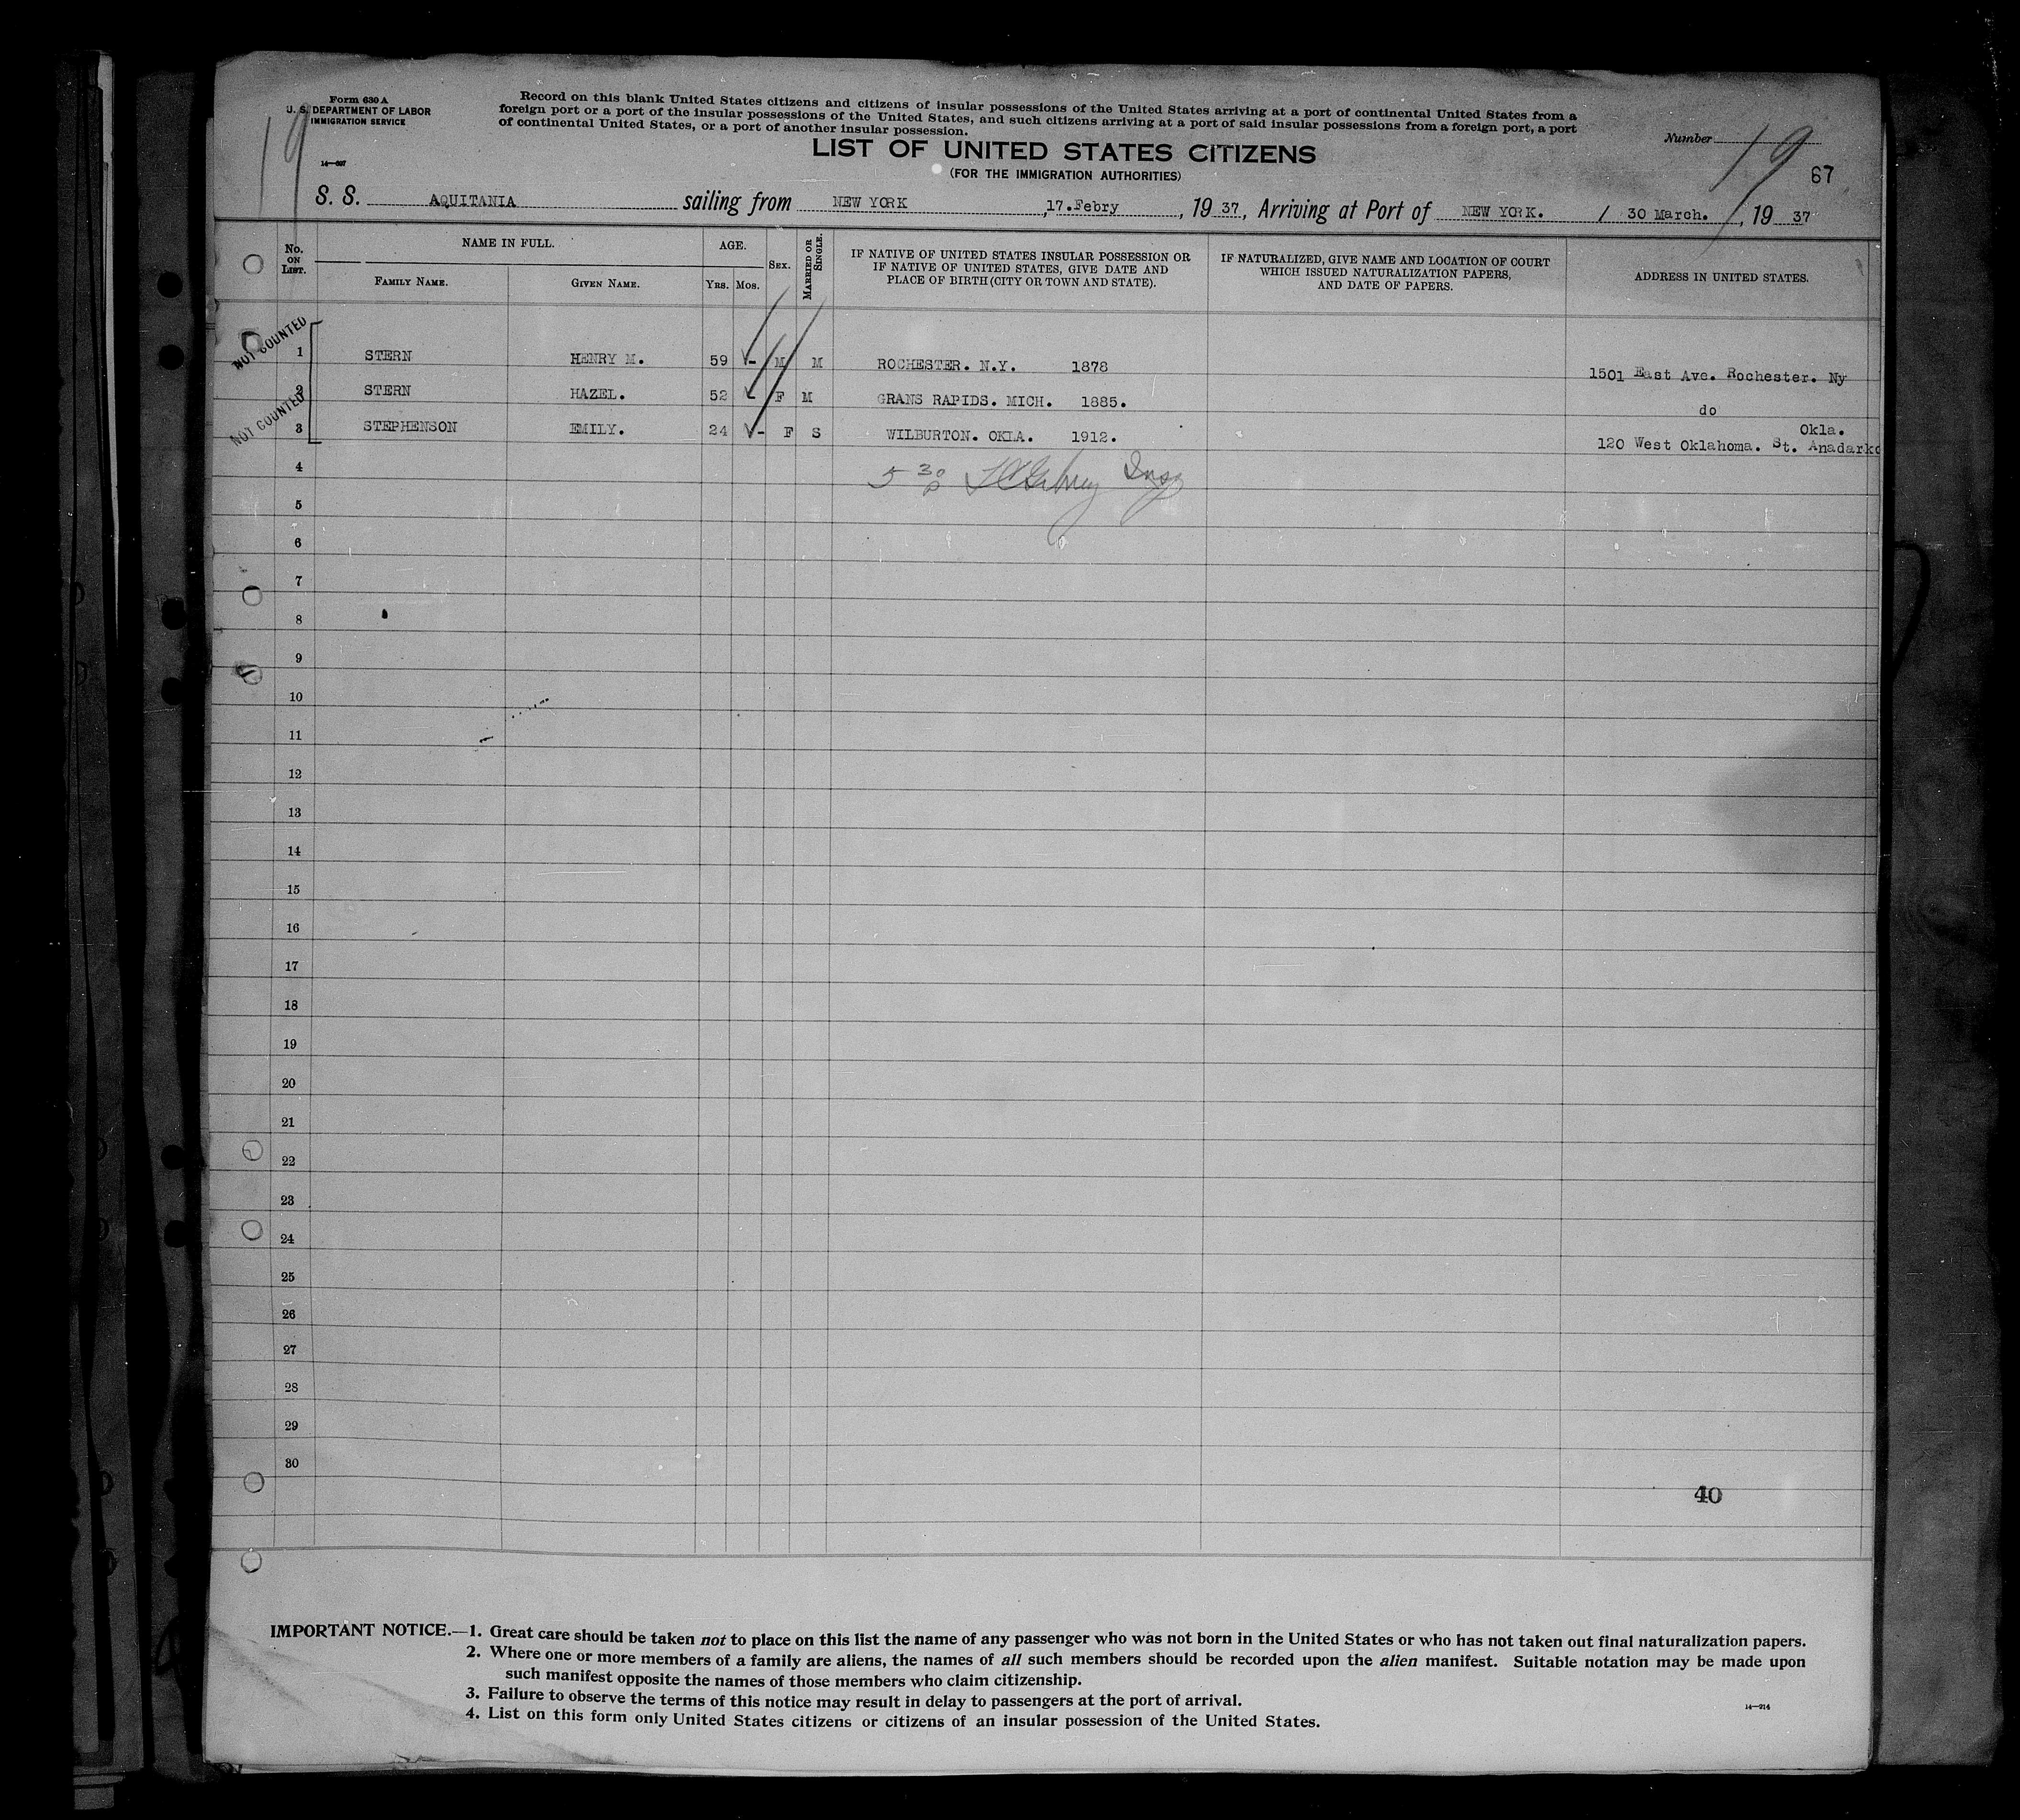 Form 630 A
U. S. DEPARTMENT OF LABOR
IMMIGRATION SERVICE
14—607
19
Record on this blank United States citizens and citizens of insular possessions of the United States arriving at a port of continental United States from a
foreign port or a port of the insular possessions of the United States, and such citizens arriving at a port of said insular possessions from a foreign port, a port
of continental United States, or a port of another insular possession.
Number
19
67
LIST OF UNITED STATES CITIZENS
(FOR THE IMMIGRATION AUTHORITIES)
S. S. AQUITANIA sailing from NEW YORK, 17.Febry, 19 37, Arriving at Port of NEW YORK. / 30 March., 19 37
No. ON LIST.
NAME IN FULL.
FAMILY NAME. GIVEN NAME.
AGE.
YRS. MOS.
SEX.
MARRIED OR SINGLE.
IF NATIVE OF UNITED STATES INSULAR POSSESSION OR
IF NATIVE OF UNITED STATES, GIVE DATE AND
PLACE OF BIRTH (CITY OR TOWN AND STATE).
IF NATURALIZED, GIVE NAME AND LOCATION OF COURT
WHICH ISSUED NATURALIZATION PAPERS,
AND DATE OF PAPERS.
ADDRESS IN UNITED STATES.
NOT COUNTED
1 STERN HENRY M. 59 - M M ROCHESTER. N.Y. 1878 1501 East Ave. Rochester. Ny
2 STERN HAZEL. 52 - F M GRANS RAPIDS. MICH. 1885. do
NOT COUNTED
3 STEPHENSON EMILY. 24 - F S WILBURTON. OKLA. 1912. 120 West Oklahoma. St. Anadarko Okla.
4
5 30 p Insp
5
6
7
8
9
10
11
12
13
14
15
16
17
18
19
20
21
22
23
24
25
26
27
28
29
30
40
IMPORTANT NOTICE.—1. Great care should be taken not to place on this list the name of any passenger who was not born in the United States or who has not taken out final naturalization papers.
2. Where one or more members of a family are aliens, the names of all such members should be recorded upon the alien manifest. Suitable notation may be made upon
such manifest opposite the names of those members who claim citizenship.
3. Failure to observe the terms of this notice may result in delay to passengers at the port of arrival.
4. List on this form only United States citizens or citizens of an insular possession of the United States.
14—214